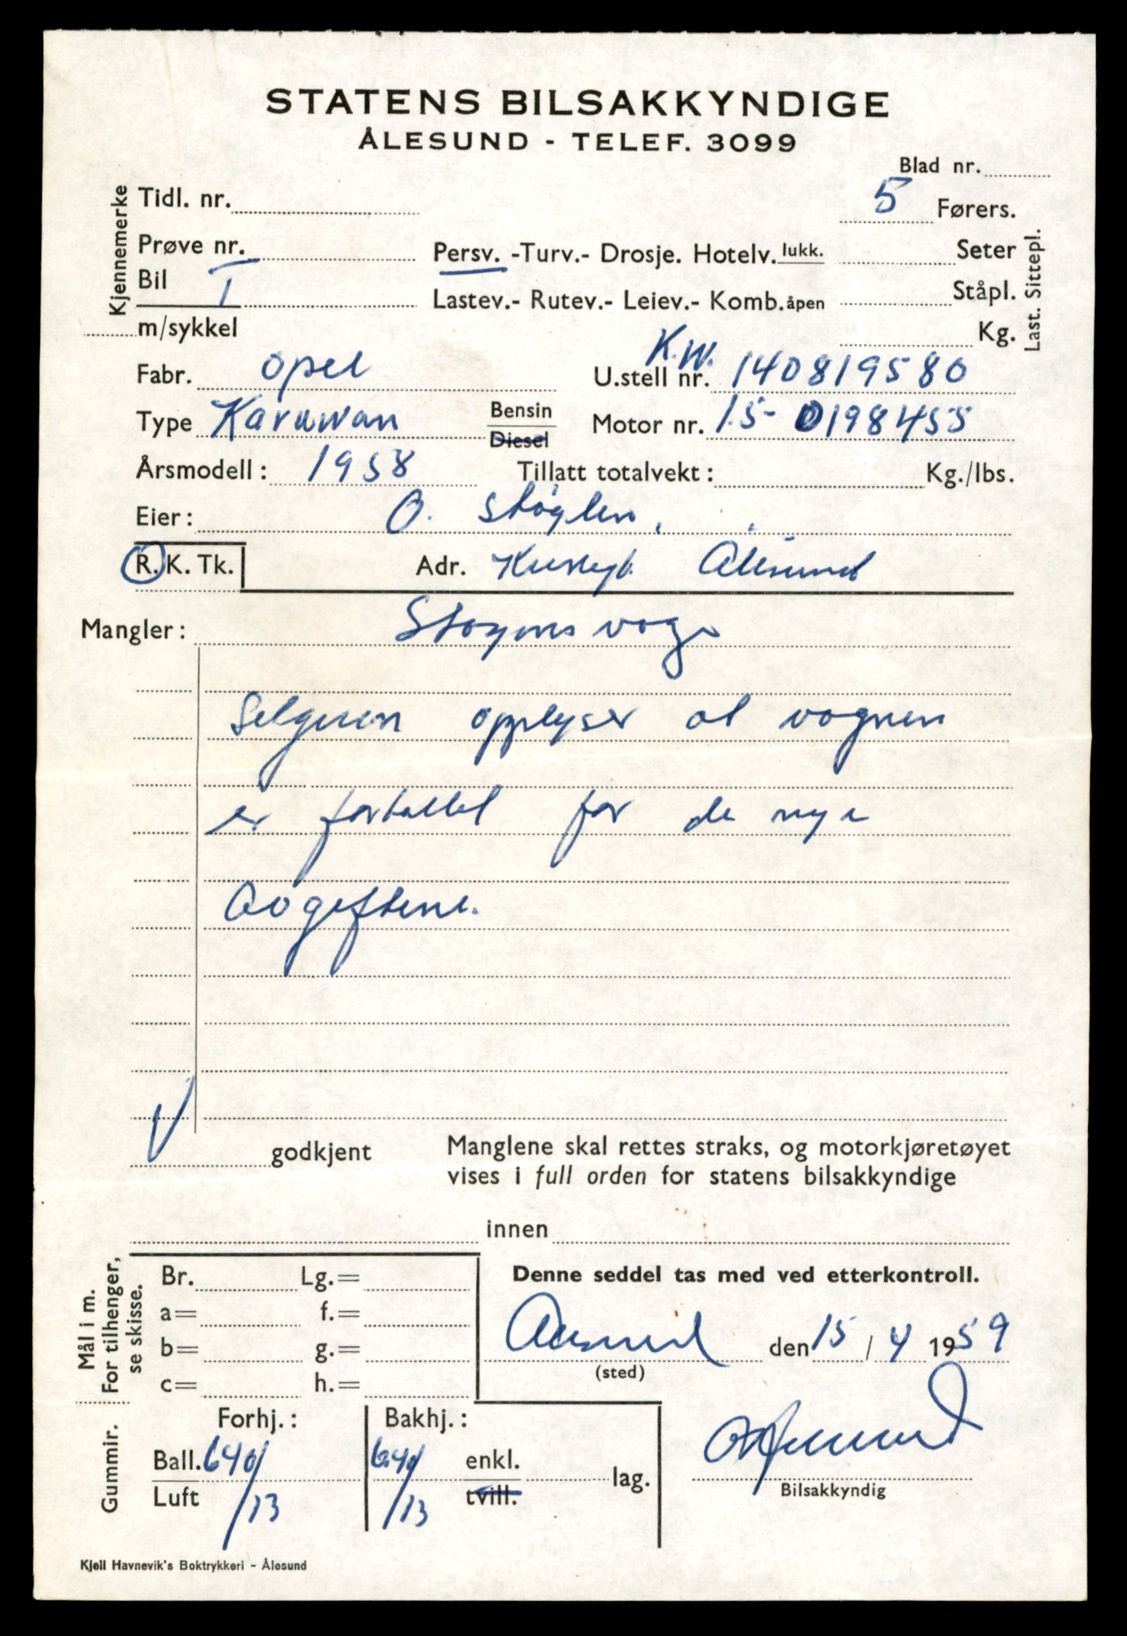 STATENS BILSAKKYNDIGE
ÅLESUND - TELEF. 3099
Blad nr.
Kjennemerke
Tidl. nr.
5 Førers.
Prøve nr.
Persv. -Turv.- Drosje. Hotelv. lukk.
Seter
Bil I
Lastev.- Rutev.- Leiev.- Komb. åpen
Ståpl.
Last. Sittepl.
m/sykkel
Kg.
Fabr. Opel
U.stell nr. K.W. 140819580
Type Karawan
Bensin
Diesel
Motor nr. 15- 0198455
Årsmodell: 1958
Tillatt totalvekt: Kg./lbs.
Eier: O. Støylen.
R. K. Tk.
Adr. Ålesund
Mangler:
Selgeren opplyser at vognen
er fortollet før de nye
Avgiftene.
V godkjent
Manglene skal rettes straks, og motorkjøretøyet
vises i full orden for statens bilsakkyndige
innen
Mål i m.
For tilhenger,
se skisse.
Br. Lg.=
a= f.=
b= g.=
c= h.=
Denne seddel tas med ved etterkontroll.
Ålesund den 15 / 4 1959
(sted)
Gummir.
Forhj.: Bakhj.:
Ball. 640/13 640/13 enkl.
Luft tvill. lag.
Bilsakkyndig
Kjell Havnevik's Boktrykkeri - Ålesund